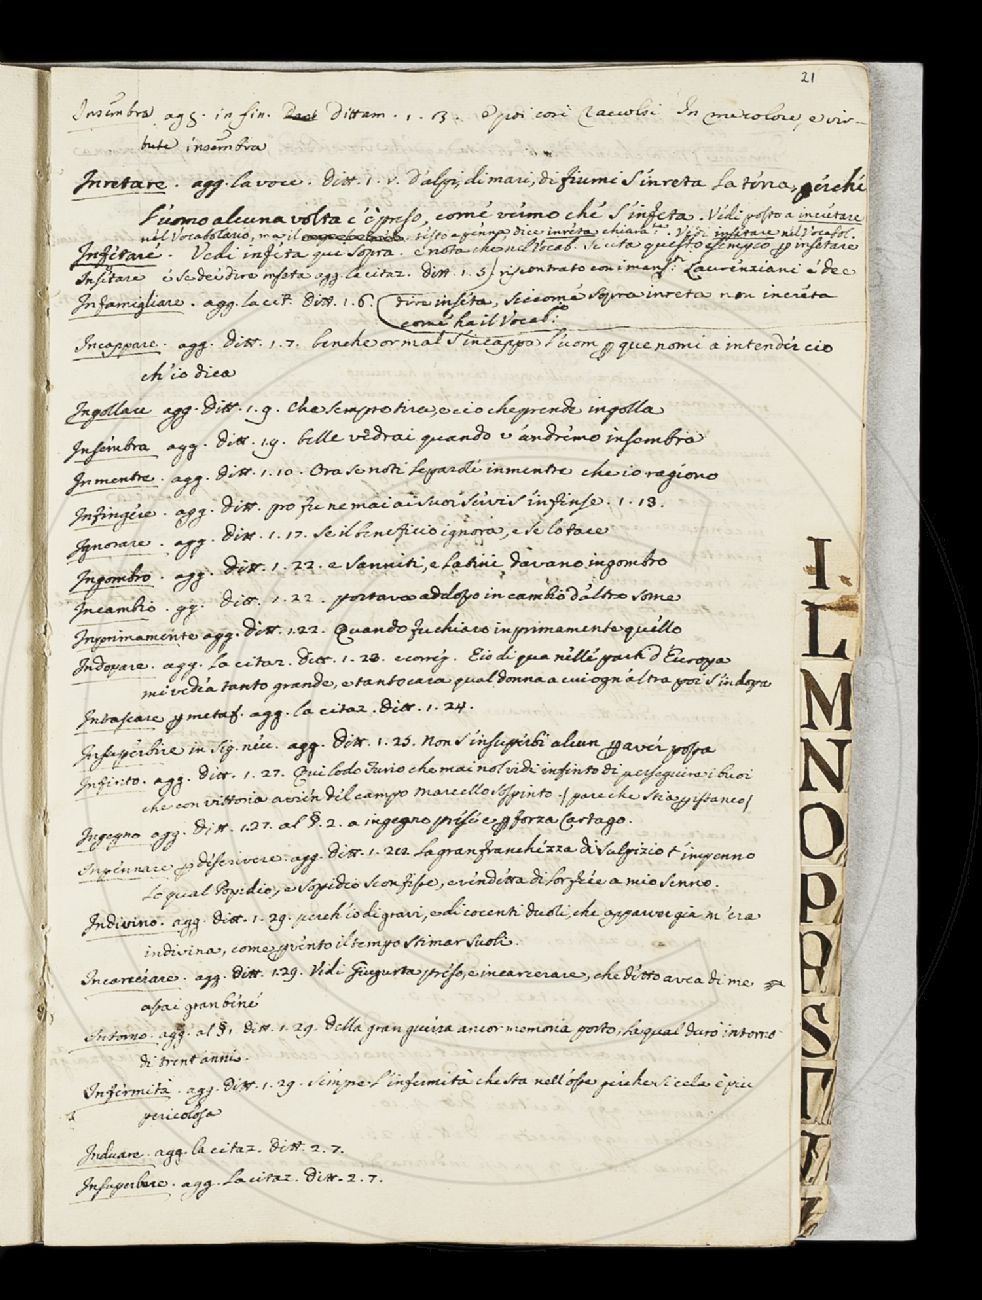 21
Insembra agg. in fin. Dittam. 1. 13. e poi così raccolsi In me colore, e vir-
tute insembra
Inretare. agg. la voce. Ditt. 1. v. D'alpi, di mari, di fiumi s'inreta La terra, perché
L'uomo alcuna volta c'è preso, come vermo che s'infeta. Vedi posto a incretare
nel Vocabolario, ma il testo a penna dice inreta chiaram.te. Vedi insetare nel Vocabol.
Insetare. Vedi inseta que sopra. è nota che nel Vocab. si cita questo esempio p insetare
Insetare e se dei dire inseta agg. la citaz. ditt. 1. 5) riscontrato con i manss.ti Laurenziani è dee
Infamigliare. agg. la cit. ditt. 1. 6. (dire inseta, siccome sopra inreta non increta
come ha il Vocab.rio
Incappare. agg. ditt. 1. 7. benche ormai s'incappo l'uom p que nomi a intender cio
ch'io dica
Ingollare agg. ditt. 1. 9. Che sempre tira, e cio che prende ingolla
Insembra agg. ditt. 1. 9. belle vedrai quando v'andremo insembra
Inmentre. agg. ditt. 1. 10. Ora se noti Lepardi inmentre che io ragiono
Infingere. agg. ditt. pro fu ne mai ai suoi servi s'infinse. 1. 13.
Ignorare. agg. ditt. 1. 17. Se il beneficio ignora, e se lo tace
Ingombro. agg. ditt. 1. 22. e Sanniti, e Latini davano ingombro
Incambio. gg. ditt. 1. 22. portava addosso in cambio d'altre some
Inprimamente agg. ditt. 1.22. Quando fu chiaro inprimamente quello
Indopare. agg. la citaz. Ditt. 1. 23. e corrig. Eio di qua nelle parti d'Europa
mi vedia tanto grande, e tanto cara qual donna a cui ogn'altra poi s'indopa
Intascare p metaf. agg. la citaz. ditt. 1. 24.
Insuperbire in sig. neu. agg. ditt. 1. 25. Non s'insuperbi alcun p aver possa
Infinto. agg. ditt. 1. 27. Qui lodo Furio che mai nol vidi infinto di perseguire i buoi
che con vittoria avien del campo Marcello sospinto. / pare che stia p istanco /
Ingegno agg. ditt. 1.27. al §. 2. a ingegno prese e p forza Cartago.
Inpennare p descrivere. agg. ditt. 1. 28. La gran franchezza di Sulpizio t'inpenno
Lo qual Popedio, e Sopidio sconfisse, e vendetta di feo a mio senno.
Indivino. agg. ditt. 1. 29. perch'io di gravi, e di cocenti duoli, che apparver gia m'era
indivina, come p vento il tempo stimar suoli.
Incarcerare. agg. ditt. 1.29. Vidi Giugurta preso, e incarcerare, che detto avea di me
assai gran bene
Intorno. agg. al §1 ditt. 1. 29. della gran guerra ancor memoria porto, La qual duro intorno
di trent'anni.
Infermità. agg. ditt. 1. 29. Sempre l'infermità che sta nell'osse perche si cela è piu
pericolosa
Induare. agg. la citaz. ditt. 2. 7.
Insuperbere. agg. La citaz. ditt. 2. 7.
I
L
M
N
O
P
Q
S
T
V
Z